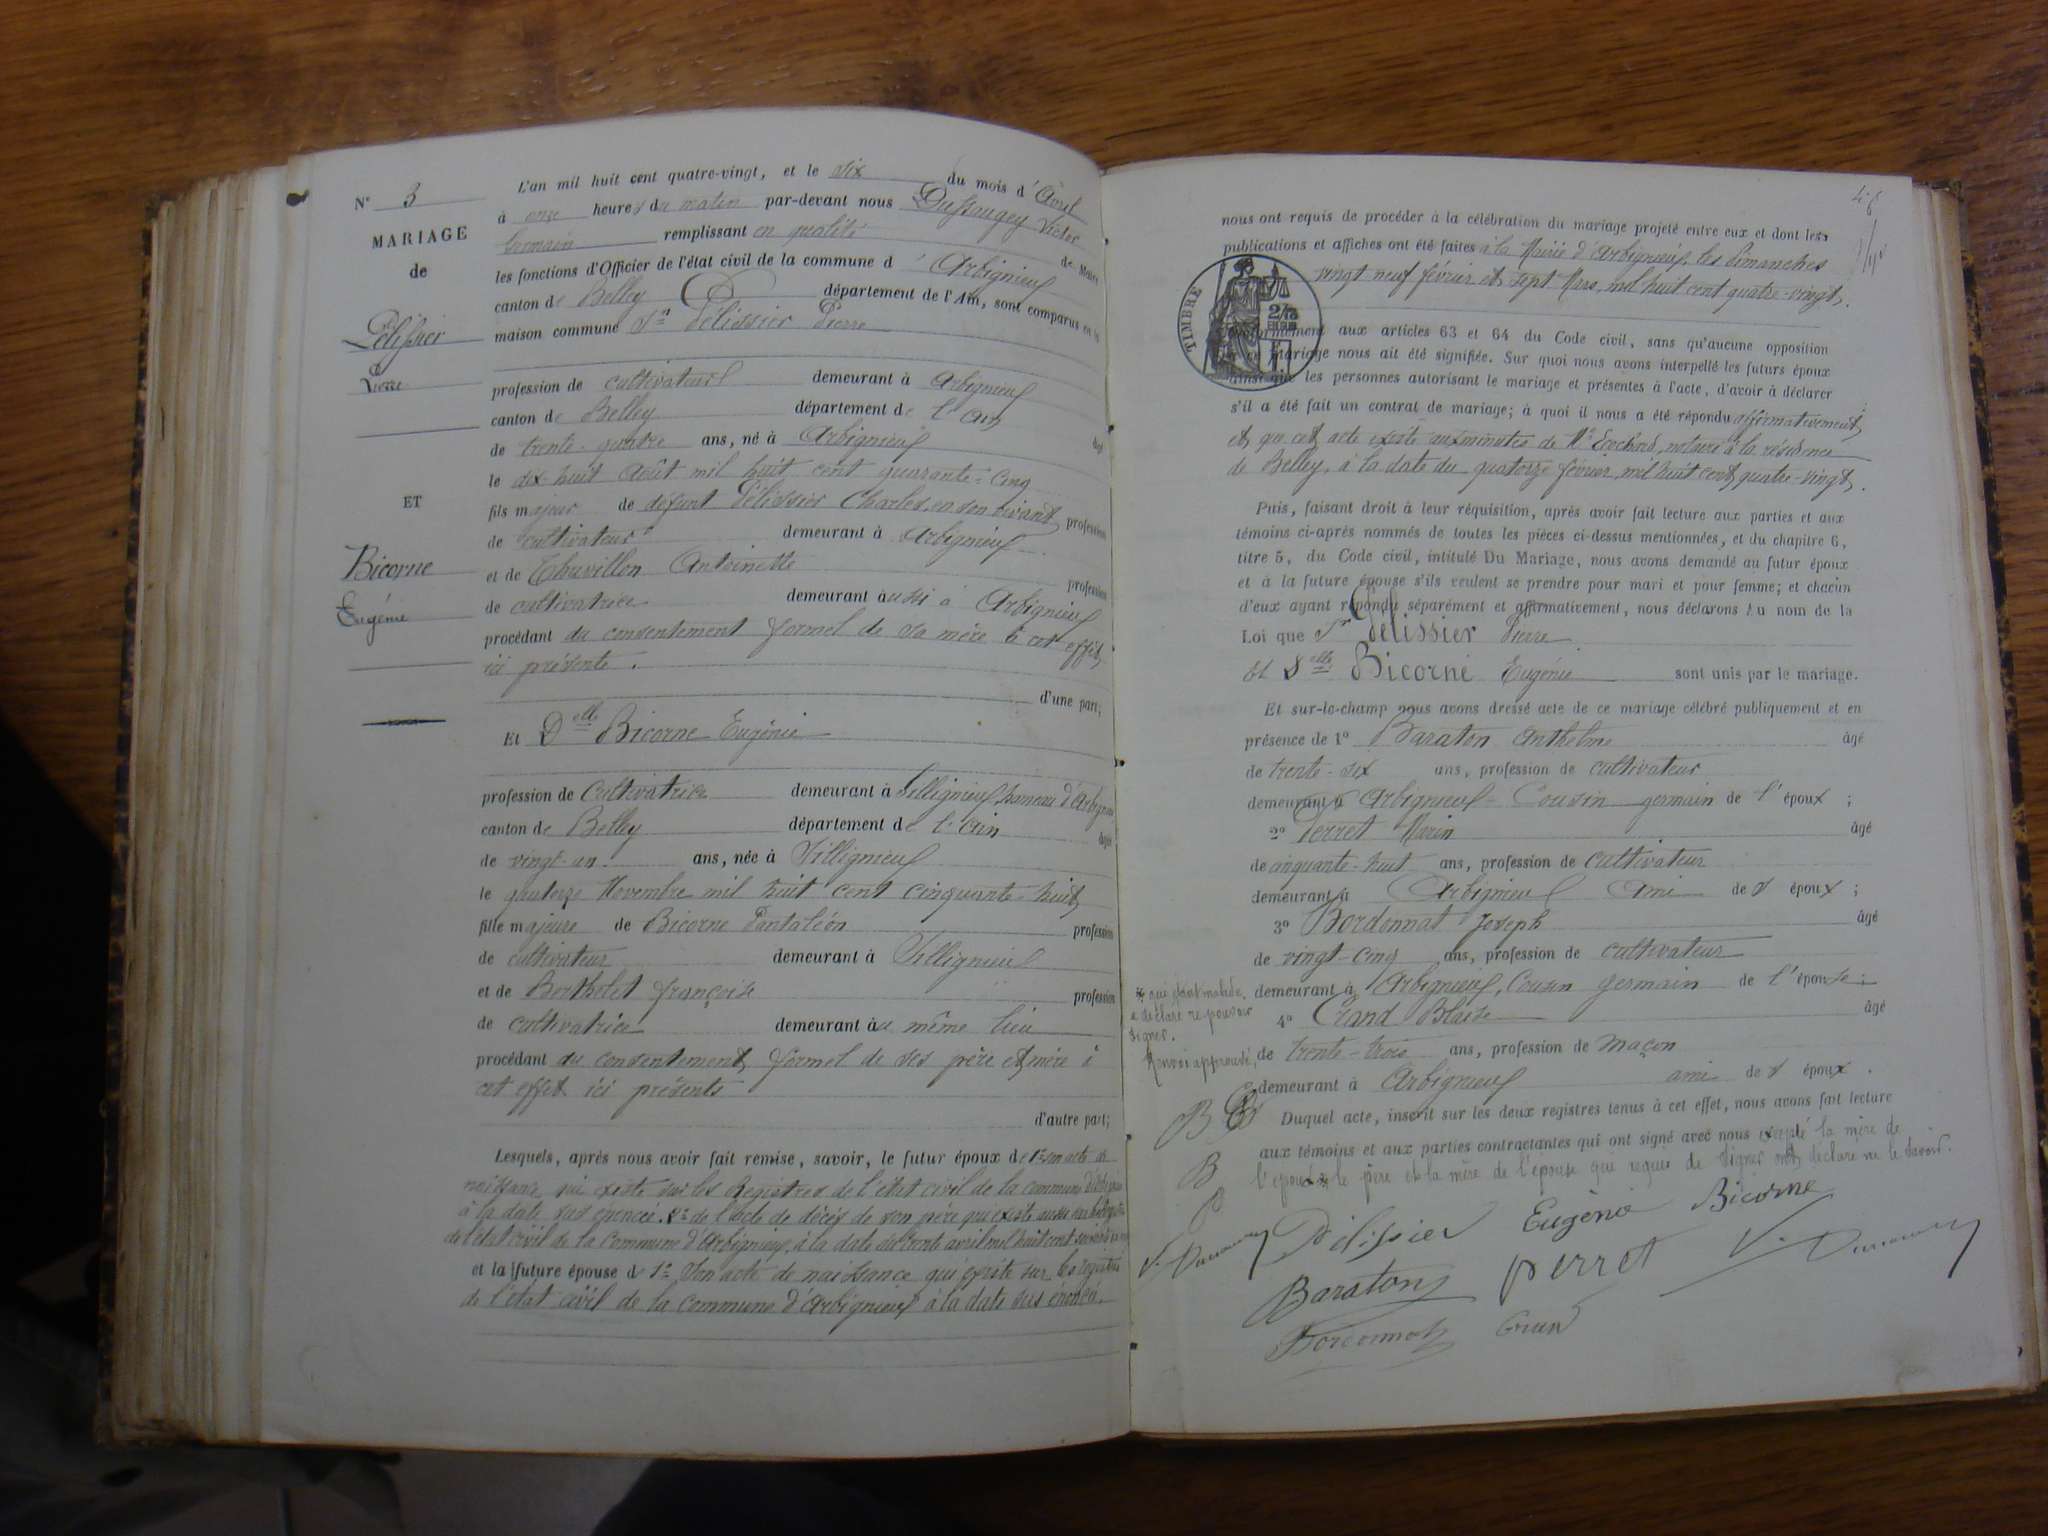 N° 3
MARIAGE
de
Pélissier
Pierre
ET
Bicorne
Eugénie
L'an mil huit cent quatre-vingt, et le six du mois d'Avril
à onze heures du matin par-devant nous Dussaugey Victor
Germain remplissant en qualité de Maire
les fonctions d'Officier de l'état civil de la commune d'Arbignieu
canton de Belley département de l'Ain, sont comparus en la
maison commune Sr Pélissier Pierre
profession de cultivateur demeurant à Arbignieu
canton de Belley département de l'Ain âgé
de trente-quatre ans, né à Arbignieu
le dix-huit Août mil huit cent quarante-cinq
fils majeur de défunt Pélissier Charles, en son vivant profession
de cultivateur demeurant à Arbignieu
et de Thuvillon Antoinette profession
de cultivatrice demeurant aussi à Arbignieu
procédant du consentement formel de sa mère à cet effet
ici présente.
d'une part;
Et Delle Bicorne Eugénie
profession de Cultivatrice demeurant à Sillignieu, hameau d'Arbignieu
canton de Belley département de l'Ain âgée
de vingt-un ans, née à Sillignieu
le quatorze Novembre mil huit cent cinquante-huit
fille majeure de Bicorne Pantaléon profession
de cultivateur demeurant à Sillignieu
et de Bertholet françoise profession
de cultivatrice demeurant au même lieu
procédant du consentement formel de ses père et mère à
cet effet ici présents
d'autre part;
Lesquels, après nous avoir fait remise, savoir, le futur époux de 1° son acte de
naissance qui existe sur les Registres de l'état civil de la commune d'Arbignieu
à la date sus énoncée. 2° de l'acte de décès de son père qui existe aussi sur les Registres
de l'état civil de la commune d'Arbignieu, à la date du trente avril mil huit cent
et la future épouse de 1° Son acte de naissance qui existe sur les registres
de l'état civil de la commune d'Arbignieu à la date sus énoncée.
48
nous ont requis de procéder à la célébration du mariage projeté entre eux et dont les
publications et affiches ont été faites à la Mairie d'Arbignieu, les Dimanches
vingt neuf février et sept Mars, mil huit cent quatre-vingt.
TIMBRE
conformément aux articles 63 et 64 du Code civil, sans qu'aucune opposition
à ce mariage nous ait été signifiée. Sur quoi nous avons interpellé les futurs époux
ainsi que les personnes autorisant le mariage et présentes à l'acte, d'avoir à déclarer
s'il a été fait un contrat de mariage; à quoi il nous a été répondu affirmativement,
et que cet acte existe aux minutes de Me Cochard, notaire à la résidence
de Belley, à la date du quatorze février, mil huit cent quatre-vingt.
Puis, faisant droit à leur réquisition, après avoir fait lecture aux parties et aux
témoins ci-après nommés de toutes les pièces ci-dessus mentionnées, et du chapitre 6,
titre 5, du Code civil, intitulé Du Mariage, nous avons demandé au futur époux
et à la future épouse s'ils veulent se prendre pour mari et pour femme; et chacun
d'eux ayant répondu séparément et affirmativement, nous déclarons au nom de la
Loi que Sr Pélissier Pierre
Et Delle Bicorne Eugénie sont unis par le mariage.
Et sur-le-champ nous avons dressé acte de ce mariage célébré publiquement et en
présence de 1° Baraton Anthelme âgé
de trente-six ans, profession de cultivateur
demeurant à Arbignieu Cousin germain de l'époux;
2° Perret Marin âgé
de cinquante-huit ans, profession de cultivateur
demeurant à Arbignieu Ami des époux;
3° Bordonnat Joseph âgé
de vingt-cinq ans, profession de cultivateur
demeurant à Arbignieu, Cousin germain de l'épouse;
4° Grand Blaise âgé
de trente-trois ans, profession de maçon
demeurant à Arbignieu ami des époux.
Duquel acte, inscrit sur les deux registres tenus à cet effet, nous avons fait lecture
aux témoins et aux parties contractantes qui ont signé avec nous excepté la mère de
l'époux le père et la mère de l'épouse qui requis de signer ont déclaré ne le savoir.
a déclaré ne pouvoir
signer.
Renvoi approuvé,
B
B
P
Pélissier Eugénie Bicorne
Baraton perret
Bordonnat Grand